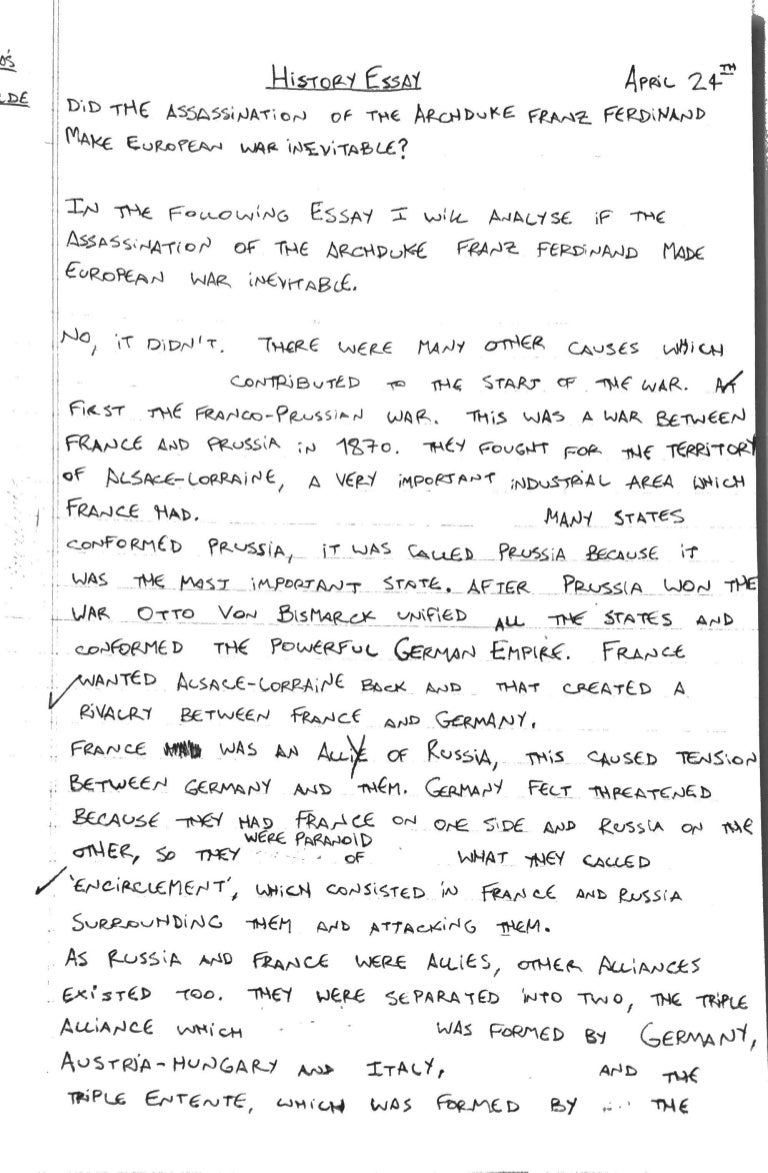 O'S
CDE
HISTORY ESSAY APRIL 24TH
DID THE ASSASSINATION OF THE ARCHDUKE FRANZ FERDINAND
MAKE EUROPEAN WAR INEVITABLE?
IN THE FOLLOWING ESSAY I WILL ANALYSE IF THE
ASSASSINATION OF THE ARCHDUKE FRANZ FERDINAND MADE
EUROPEAN WAR INEVITABLE.
NO, IT DIDN'T. THERE WERE MANY OTHER CAUSES WHICH
CONTRIBUTED TO THE START OF THE WAR. AT
FIRST THE FRANCO-PRUSSIAN WAR. THIS WAS A WAR BETWEEN
FRANCE AND PRUSSIA IN 1870. THEY FOUGHT FOR THE TERRITORY
OF ALSACE-LORRAINE, A VERY IMPORTANT INDUSTRIAL AREA WHICH
FRANCE HAD. MANY STATES
CONFORMED PRUSSIA, IT WAS CALLED PRUSSIA BECAUSE IT
WAS THE MOST IMPORTANT STATE. AFTER PRUSSIA WON THE
WAR OTTO VON BISMARCK UNIFIED ALL THE STATES AND
CONFORMED THE POWERFUL GERMAN EMPIRE. FRANCE
WANTED ALSACE-LORRAINE BACK AND THAT CREATED A
RIVALRY BETWEEN FRANCE AND GERMANY.
FRANCE WAS AN ALLY OF RUSSIA, THIS CAUSED TENSION
BETWEEN GERMANY AND THEM. GERMANY FELT THREATENED
BECAUSE THEY HAD FRANCE ON ONE SIDE AND RUSSIA ON THE
OTHER, SO THEY WERE PARANOID OF WHAT THEY CALLED
'ENCIRCLEMENT', WHICH CONSISTED IN FRANCE AND RUSSIA
SURROUNDING THEM AND ATTACKING THEM.
AS RUSSIA AND FRANCE WERE ALLIES, OTHER ALLIANCES
EXISTED TOO. THEY WERE SEPARATED INTO TWO, THE TRIPLE
ALLIANCE WHICH WAS FORMED BY GERMANY,
AUSTRIA-HUNGARY AND ITALY, AND THE
TRIPLE ENTENTE, WHICH WAS FORMED BY THE